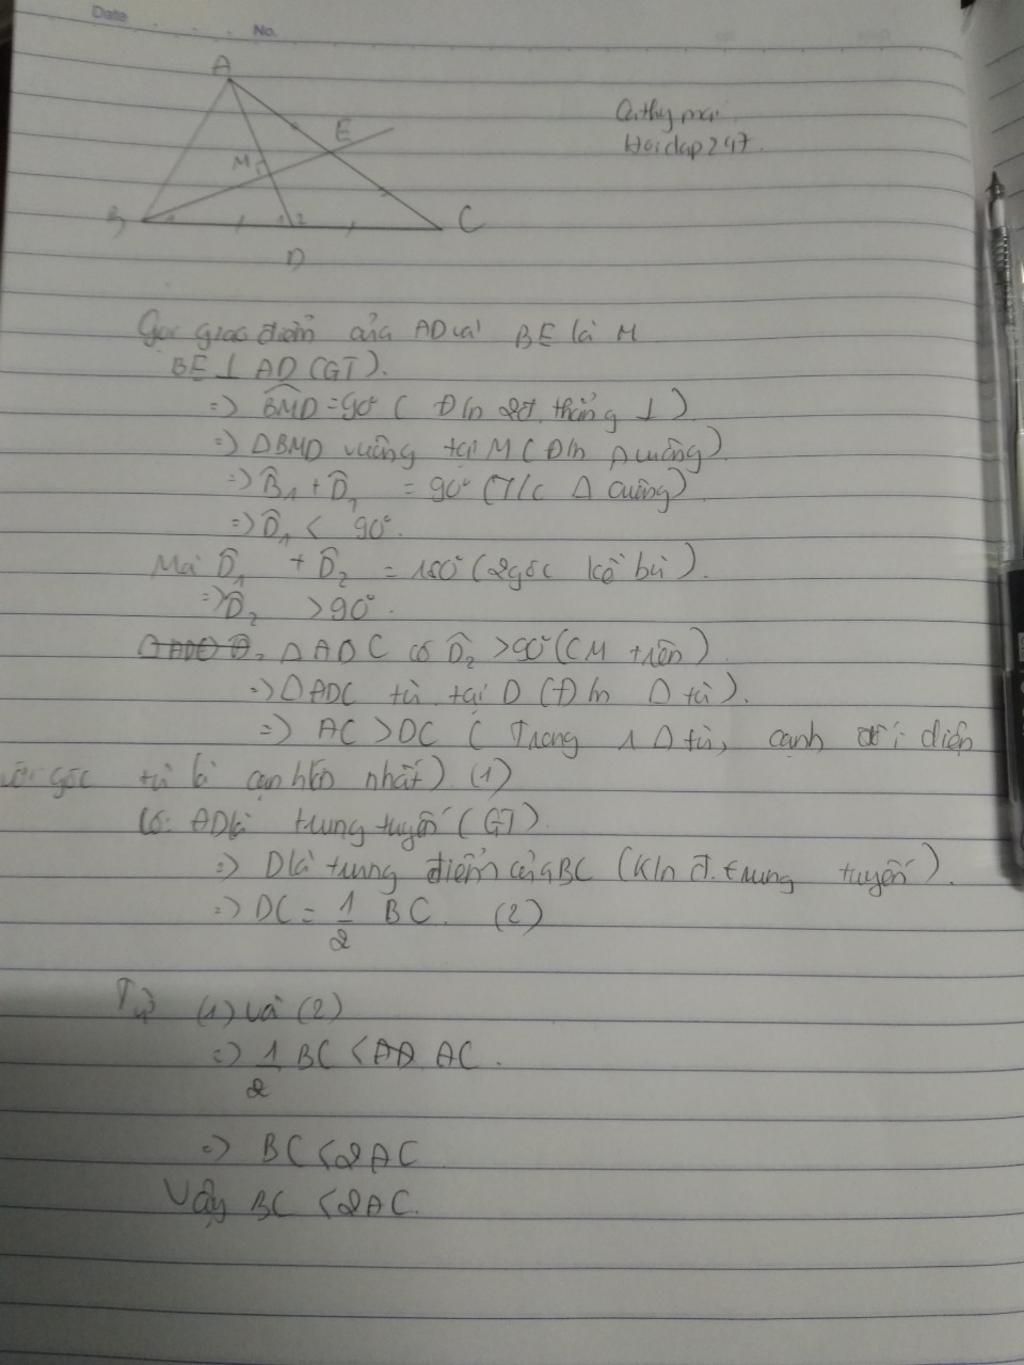 Date
No.
A
E
M
B
1 2
C
D
Cathy mai
Hoidap247.
Gọi giao điểm của AD và BE là M
BE ⊥ AD (GT).
=> BMD = 90° ( Đ/n 2đ. thẳng ⊥ )
=> ΔBMD vuông tại M ( Đ/n Δ vuông)
=> B̂₁ + D̂₁ = 90° (T/c Δ vuông)
=> D̂₁ < 90°.
Mà D̂₁ + D̂₂ = 180° (2 góc kề bù).
=> D̂₂ > 90°.
ΔADC có D̂₂ > 90° (CM trên)
=> ΔADC tù tại D (Đ/n Δ tù).
=> AC > DC ( Trong 1 Δ tù, cạnh đối diện
với góc tù là cạnh lớn nhất) (1)
Có: AD là trung tuyến (GT).
=> D là trung điểm của BC (K/n đ. trung tuyến).
=> DC = 1/2 BC. (2)
Từ (1) và (2)
=> 1/2 BC < AC.
=> BC < 2AC
Vậy BC < 2AC.